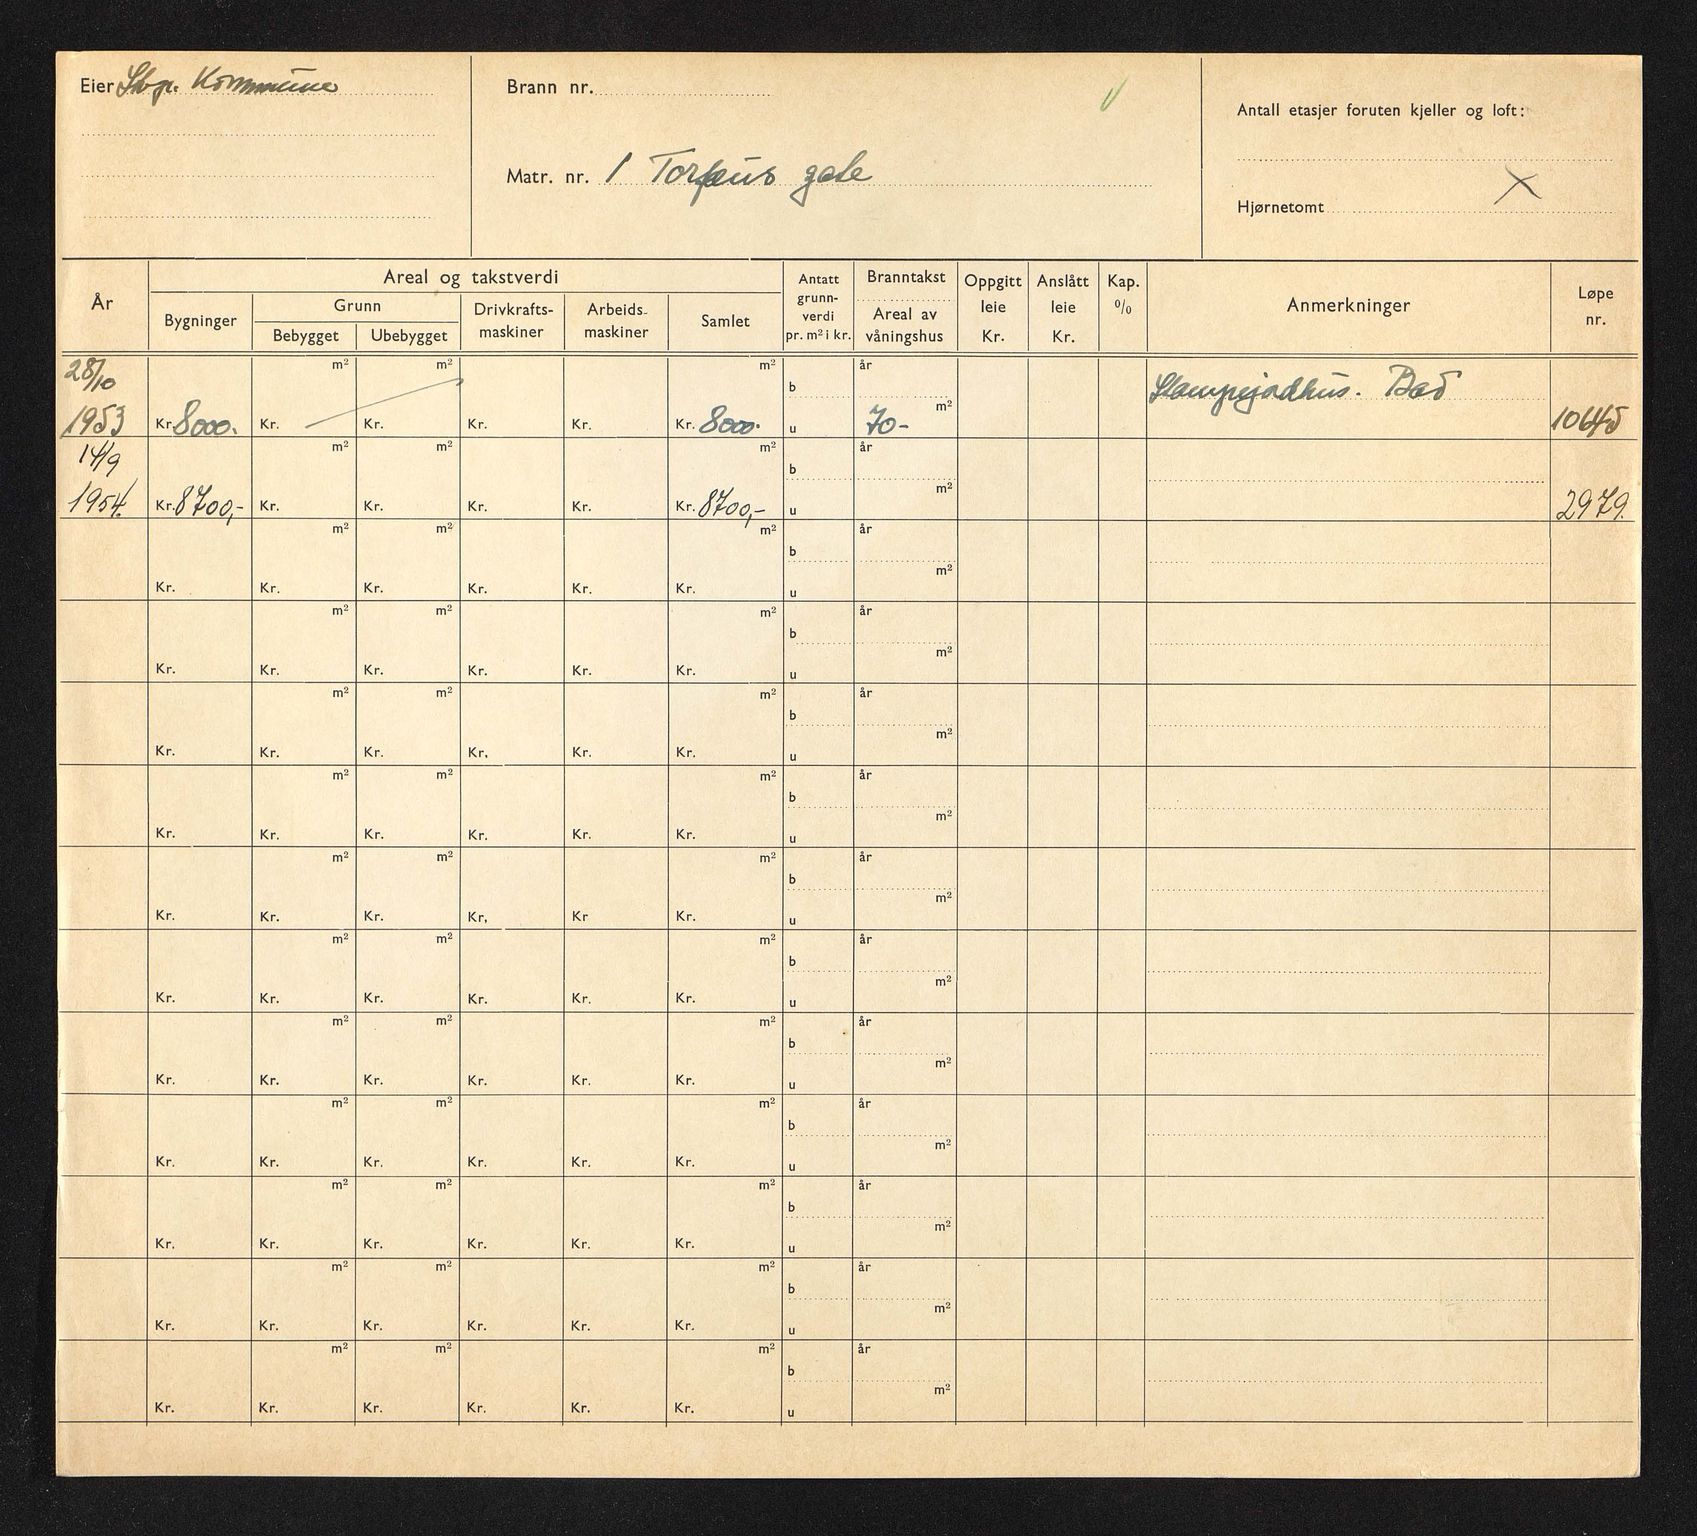 Eier Sbgr. Kommune
Brann nr.
Matr. nr. 1 Torfæus gate
Antall etasjer foruten kjeller og loft:
Hjørnetomt X
År
Areal og takstverdi
Bygninger
Grunn
Bebygget
Ubebygget
Drivkrafts-maskiner
Arbeids-maskiner
Samlet
Antatt grunn-verdi pr. m² i kr.
Branntakst
Areal av våningshus
Oppgitt leie Kr.
Anslått leie Kr.
Kap. %
Anmerkninger
Løpe nr.
28/10 m² m² m² b år Bad
1953 Kr. 8000. Kr. Kr. Kr. Kr. Kr. 8000. u 70- m² 10645
14/9 m² m² m² b år
1954. Kr. 8700,- Kr. Kr. Kr. Kr. Kr. 8700,- u m² 2979.
m² m² m² b år
Kr. Kr. Kr. Kr. Kr. Kr. u m²
m² m² m² b år
Kr. Kr. Kr. Kr. Kr. Kr. u m²
m² m² m² b år
Kr. Kr. Kr. Kr. Kr. Kr. u m²
m² m² m² b år
Kr. Kr. Kr. Kr. Kr. Kr. u m²
m² m² m² b år
Kr. Kr. Kr. Kr. Kr Kr. u m²
m² m² m² b år
Kr. Kr. Kr. Kr. Kr. Kr. u m²
m² m² m² b år
Kr. Kr. Kr. Kr. Kr. Kr. u m²
m² m² m² b år
Kr. Kr. Kr. Kr. Kr. Kr. u m²
m² m² m² b år
Kr. Kr. Kr. Kr. Kr. Kr. u m²
m² m² m² b år
Kr. Kr. Kr. Kr. Kr. Kr. u m²
m² m² m² b år
Kr. Kr. Kr. Kr. Kr. Kr. u m²